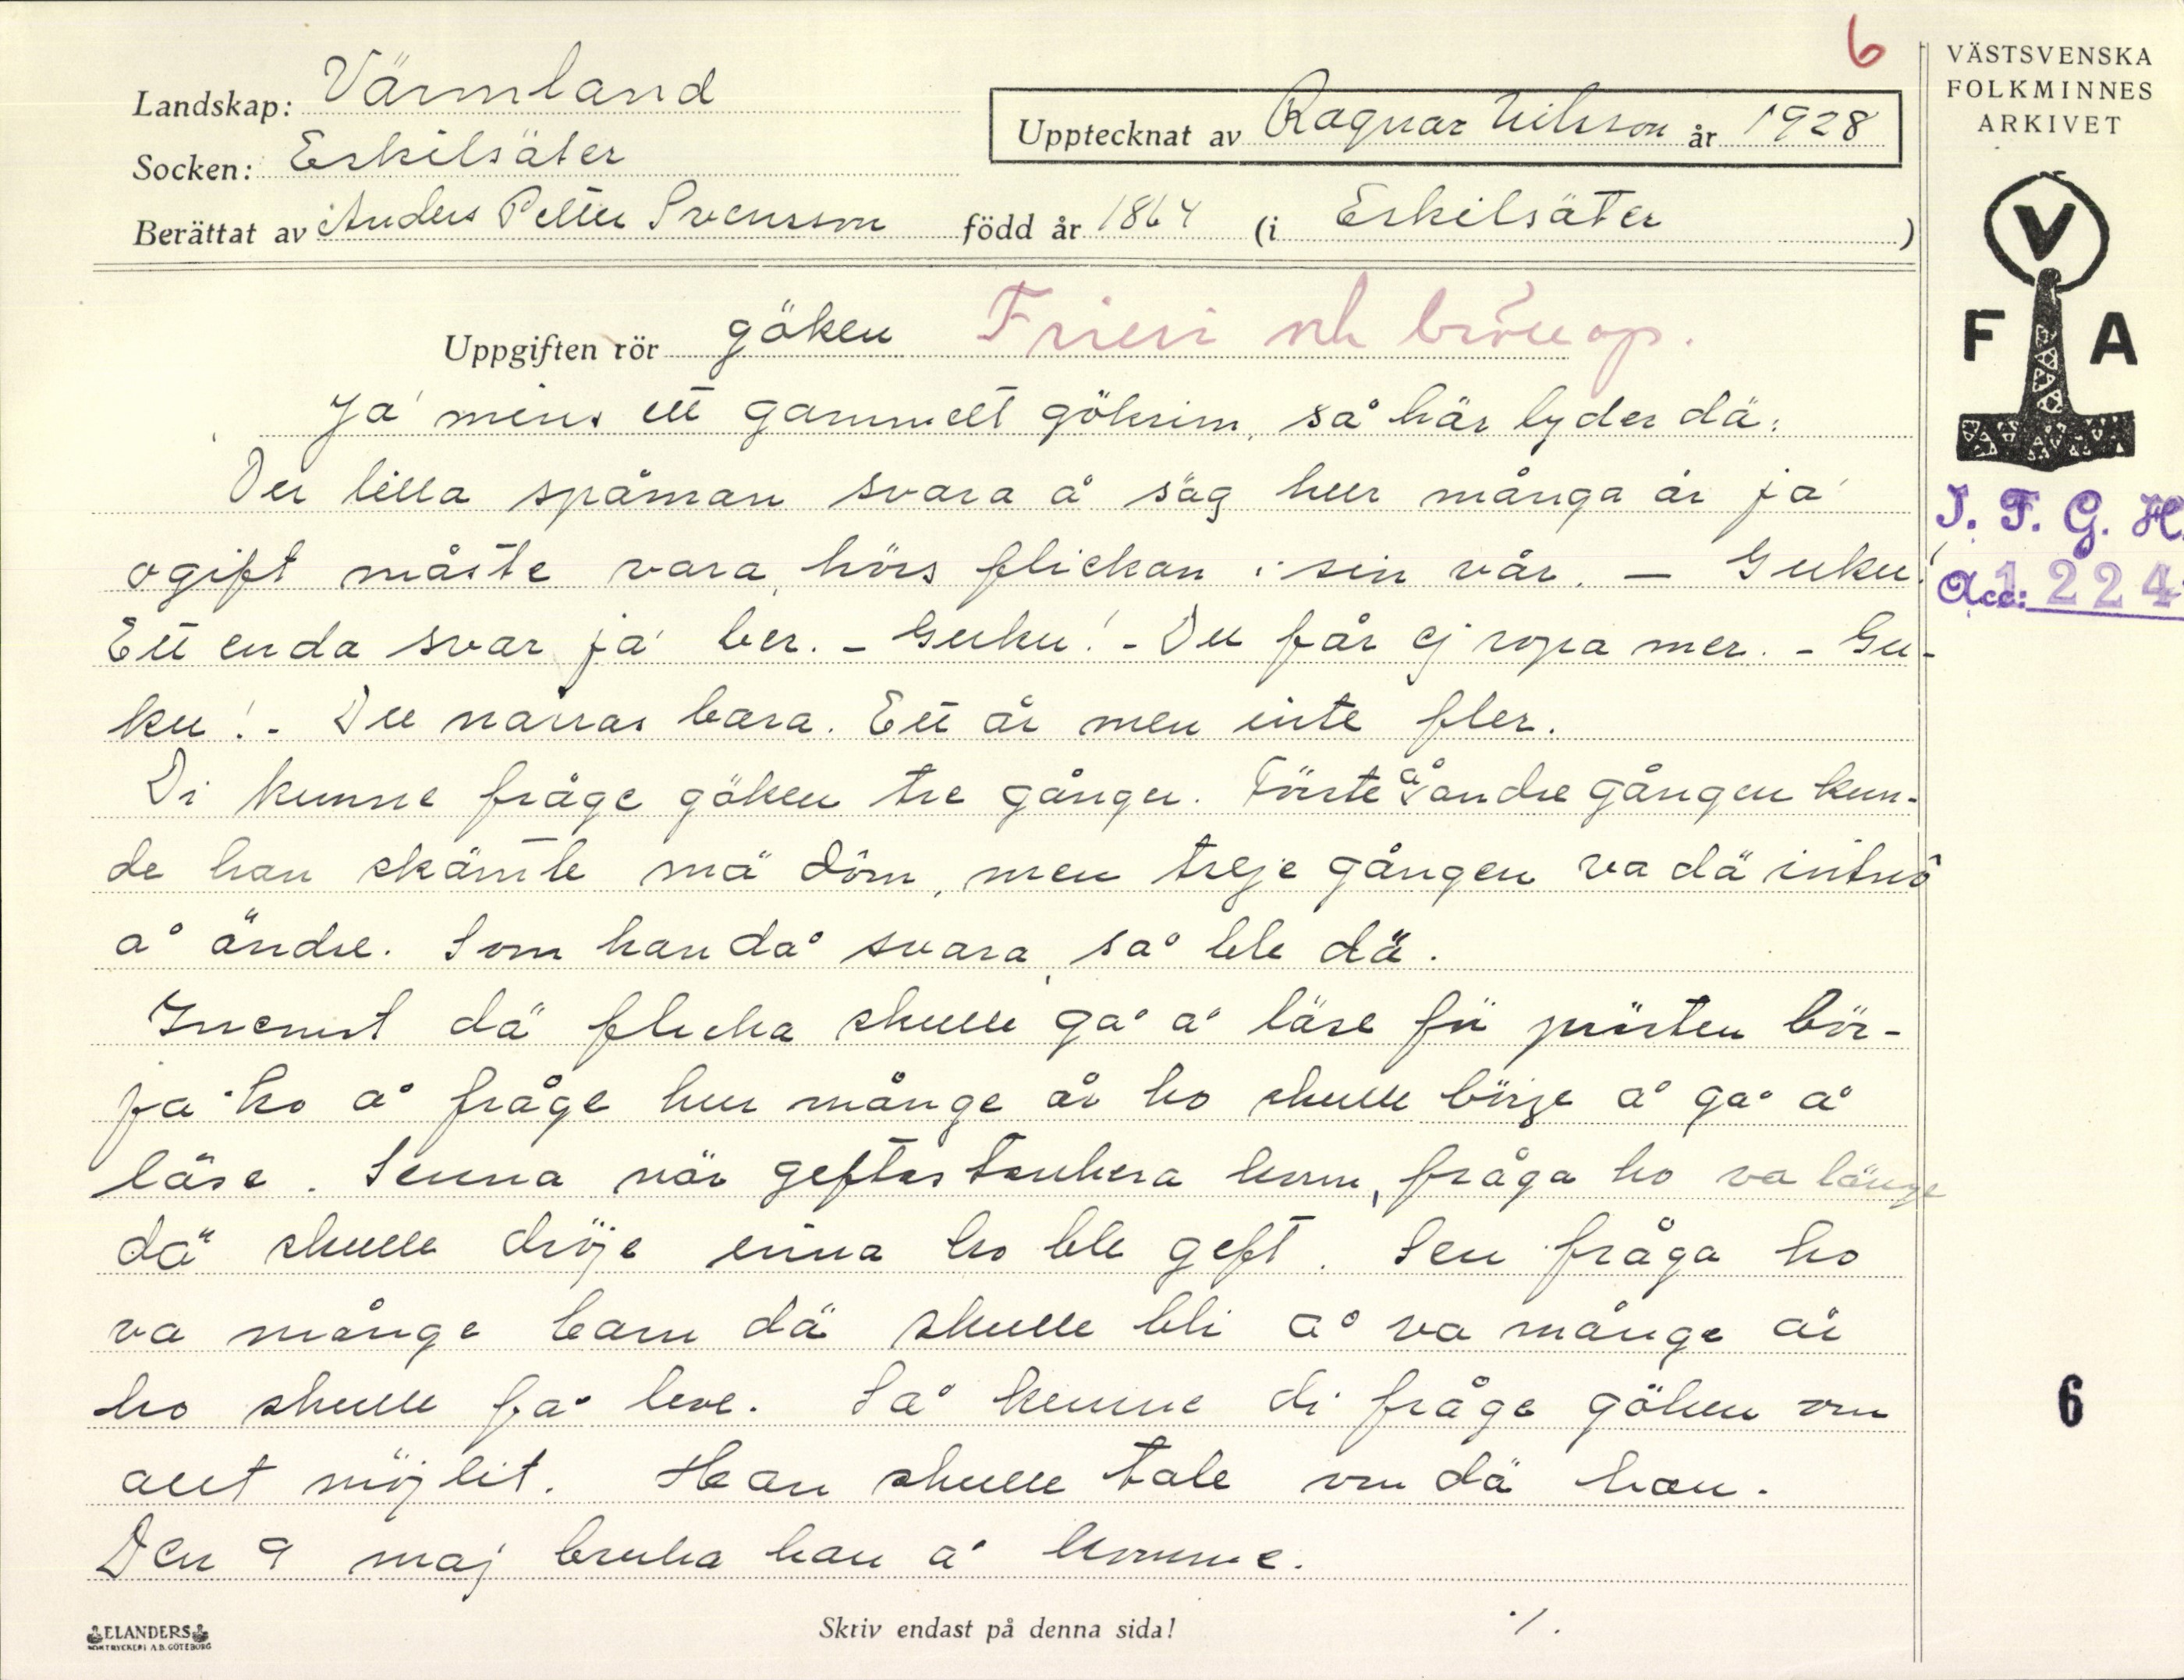 6
VÄSTSVENSKA
FOLKMINNES
ARKIVET
Landskap: Värmland
Upptecknat av Ragnar Nilsson år 1928
Socken: Eskilsäter
Berättat av Anders Petter Svensson född år 1864 (i Eskilsäter)
V
F A
Uppgiften rör göken Frieri och bröllop.
Ja' mins ett gammelt gökrim, så här lyder dä:
Du lilla spåman svara å säg hur många år ja'
ogift måste vara, hörs flickan i sin vår. – Guku!
Ett enda svar ja' ber. – Guku! – Du får ej ropa mer. – Gu-
ku! – Du narras bara. Ett år men inte fler.
Di kunne fråge göken tre gånger. Förste å andre gången kun-
de han skämte mä döm, men treje gången va dä intnô
å ändre. Som han då svara, så ble dä.
Innemst dä flicka skulle gå å läse fü prästen bör-
ja ho å fråge hur månge år ho skulle börje å gå å
läse. Senna när geftastankera kom, fråga ho va länge
dä skulle dröje inna ho ble geft. Sen fråga ho
va månge barn dä skulle bli å va månge år
ho skulle få leve. Så kunne di fråge göken om
allt möjlit. Han skulle tale om dä han.
Den 9 maj bruka han å komme.
I. F. G. H.
Acc: 1224
6
ELANDERS
BOKTRYCKERI A.B. GÖTEBORG
Skriv endast på denna sida!
./.